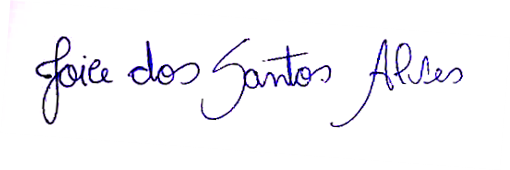 Joice dos Santos Alves